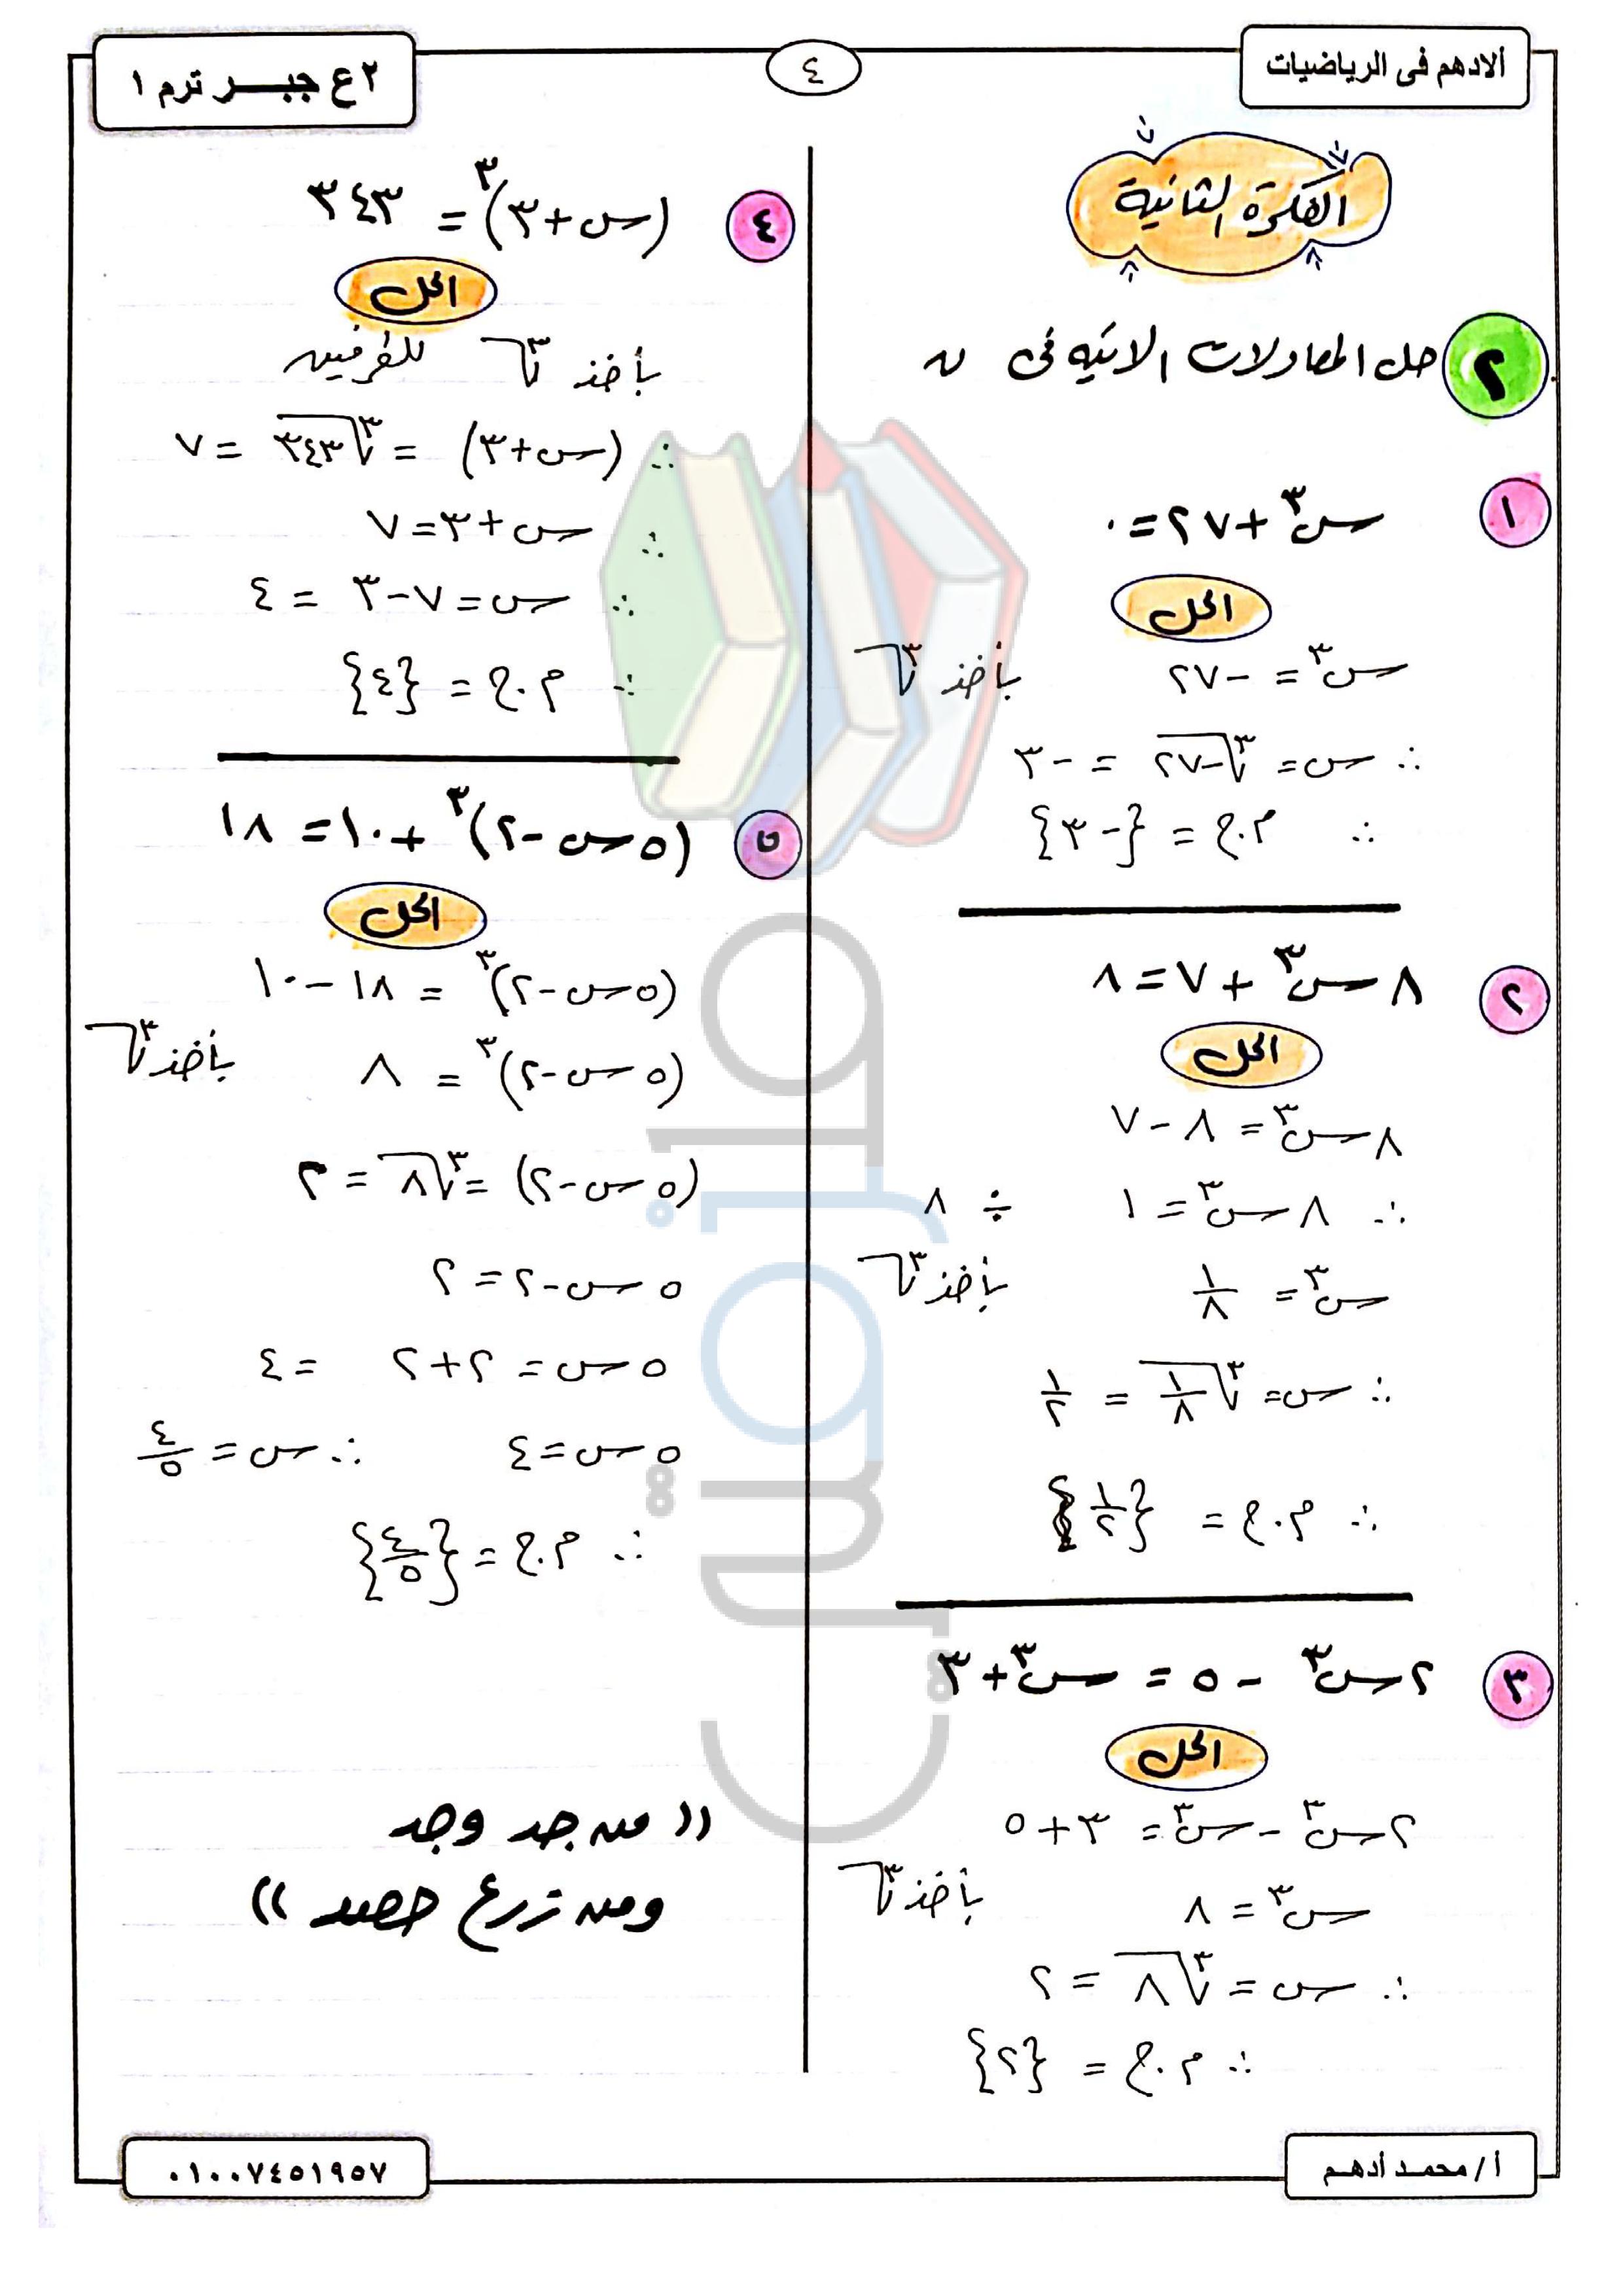 ألادهم فى الرياضيات
٤
٢ع جبر ترم ١
الفكرة الثانية
٢ حل المعادلات الاتيه فى ن
١ س³ + ٢٧ = ٠
الحل
س³ = -٢٧ بأخذ ∛
∴ س = ∛-٢٧ = -٣
∴ م.ح = {-٣}
٢ ٨س³ + ٧ = ٨
الحل
٨س³ = ٨ - ٧
∴ ٨س³ = ١ ÷ ٨
س³ = ١/٨ بأخذ ∛
∴ س = ∛١/٨ = ١/٢
∴ م.ح = {١/٢}
٣ ٢س³ - ٥ = س³ + ٣
الحل
٢س³ - س³ = ٣ + ٥
س³ = ٨ بأخذ ∛
∴ س = ∛٨ = ٢
∴ م.ح = {٢}
٤ (س + ٣)³ = ٣٤٣
الحل
بأخذ ∛ للطرفين
∴ (س + ٣) = ∛٣٤٣ = ٧
∴ س + ٣ = ٧
∴ س = ٧ - ٣ = ٤
∴ م.ح = {٤}
٥ (٥س - ٢)³ + ١٠ = ١٨
الحل
(٥س - ٢)³ = ١٨ - ١٠
(٥س - ٢)³ = ٨ بأخذ ∛
(٥س - ٢) = ∛٨ = ٢
٥س - ٢ = ٢
٥س = ٢ + ٢ = ٤
٥س = ٤ ∴ س = ٤/٥
∴ م.ح = {٤/٥}
(( من جد وجد
ومن زرع حصد ))
أ / محمد أدهم
٠١٠٠٧٤٥١٩٥٧